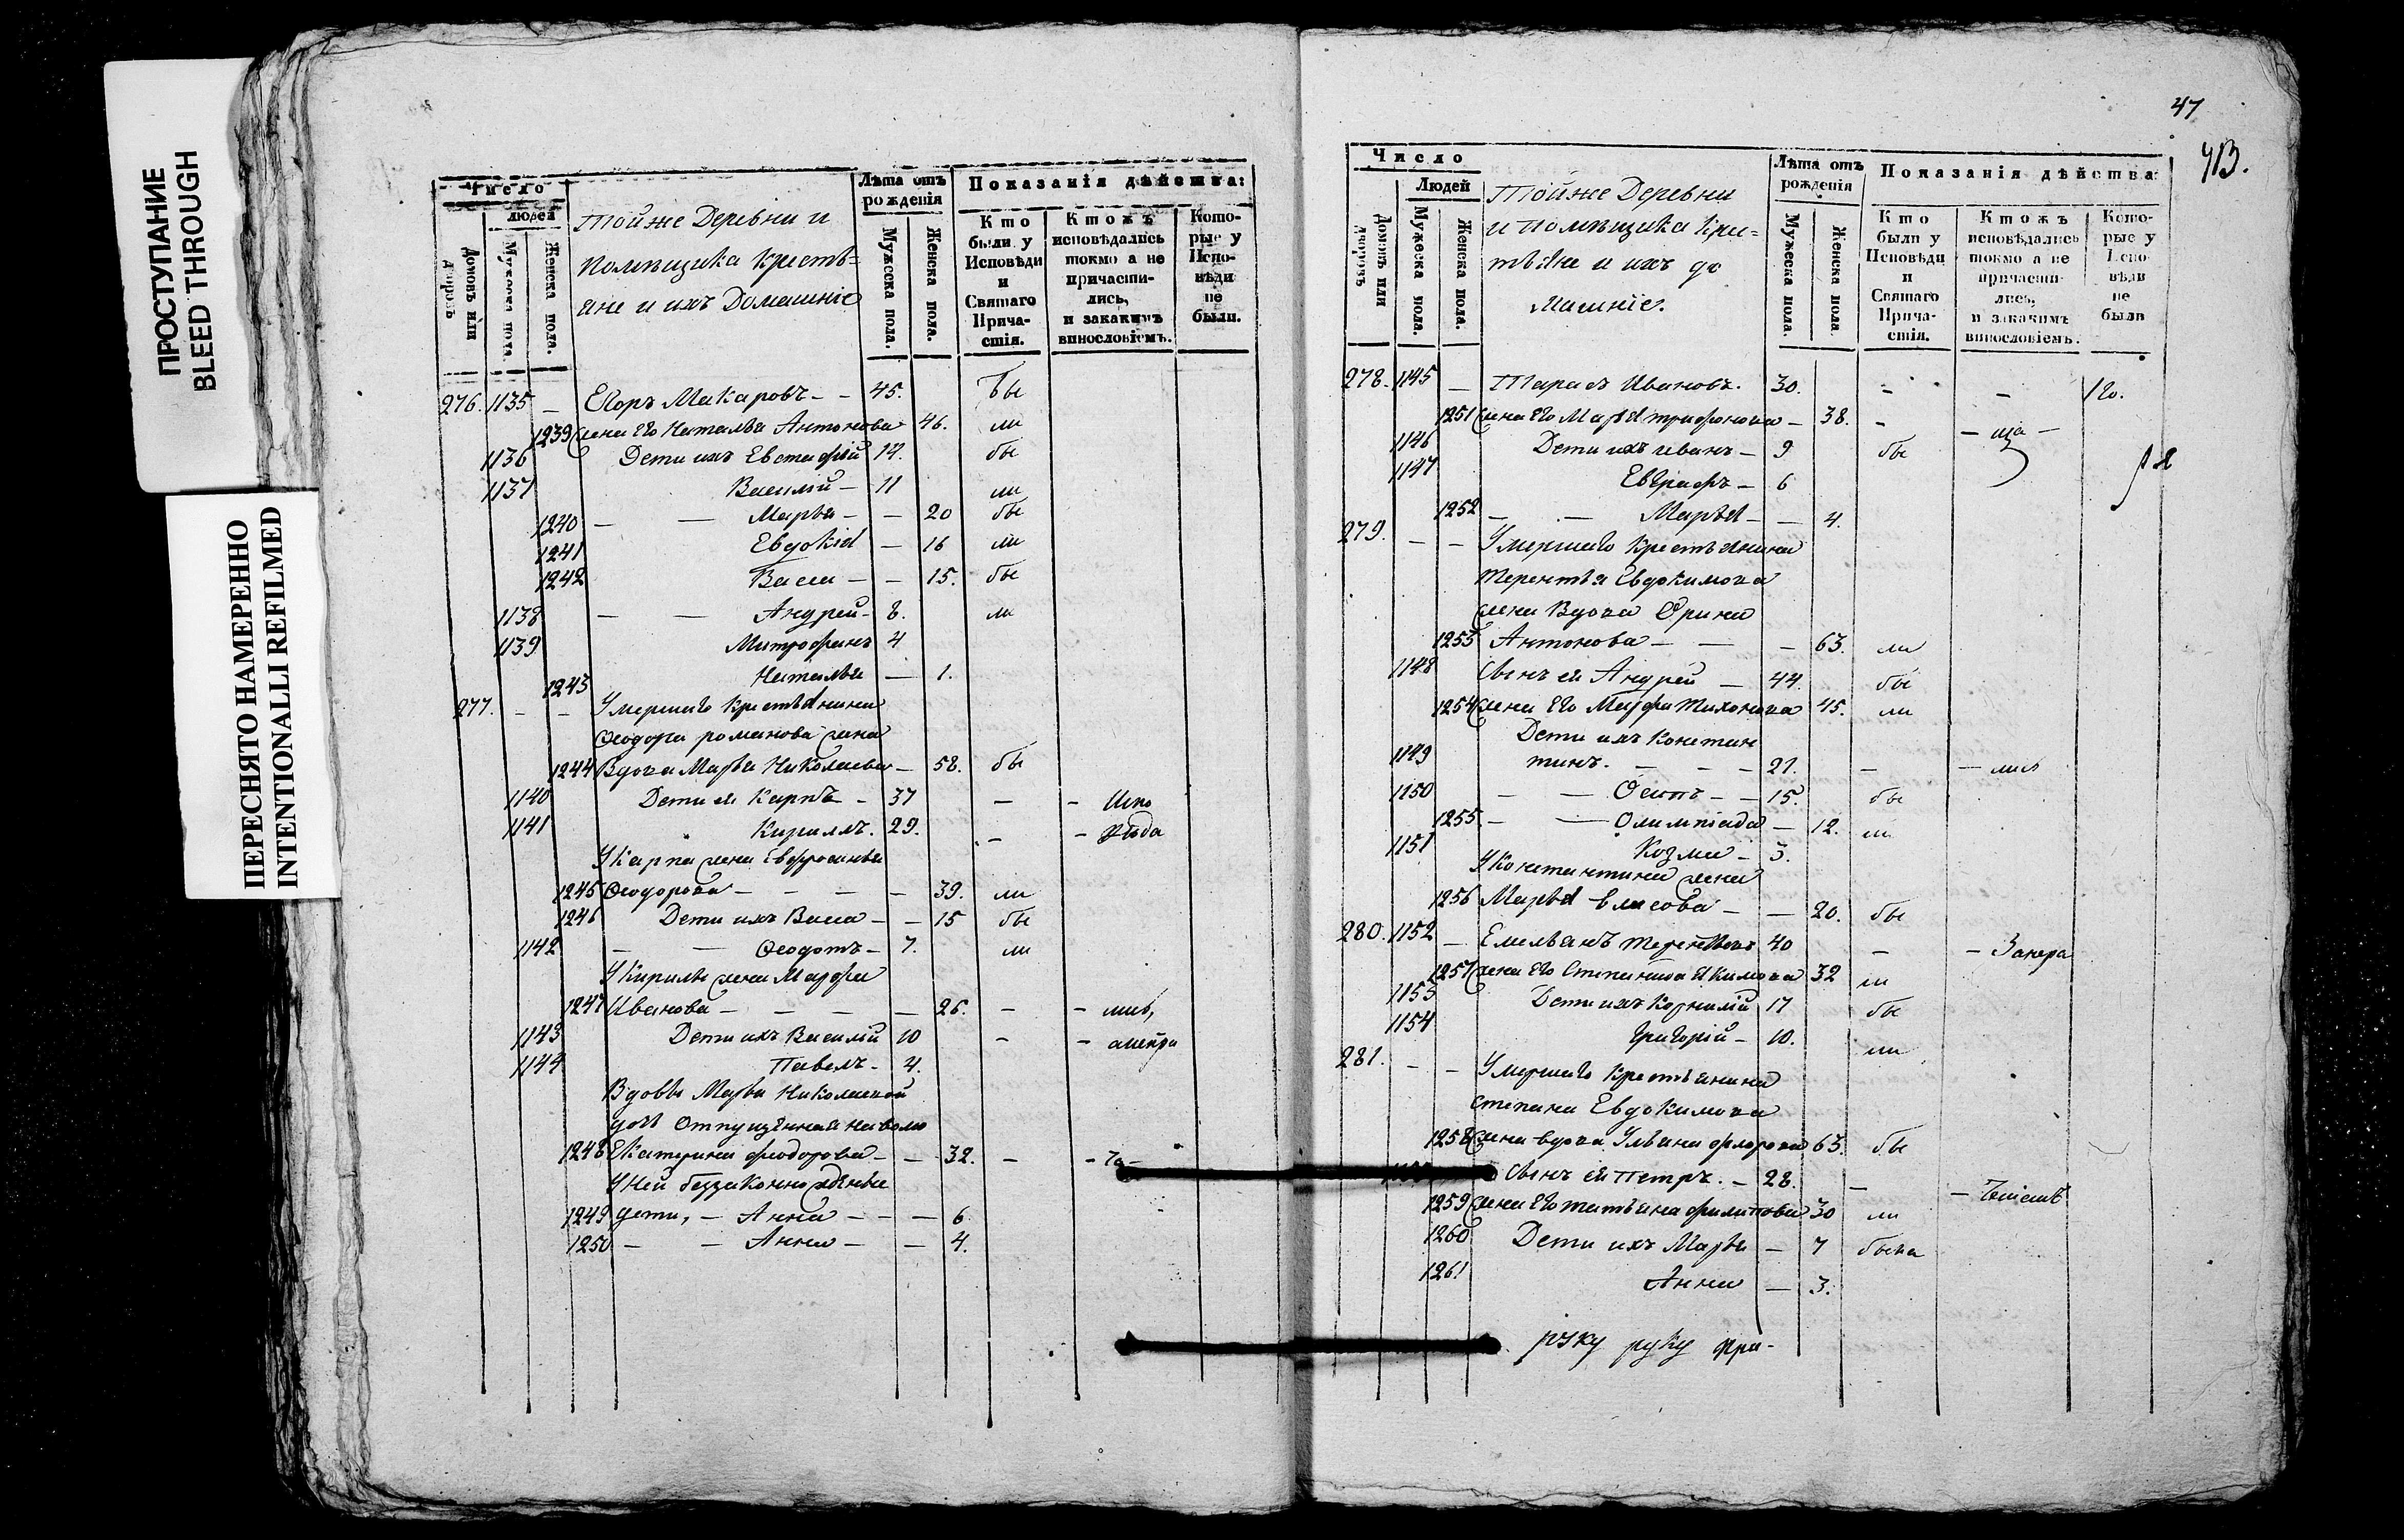 ПРОСТУПАНИЕ
BLEED THROUGH
ПЕРЕСНЯТО НАМЕРЕННО
INTENTIONALLI REFILMED
Число
людей
Домовъ или дворовъ
Мужеска пола.
Женска пола.
Тойже Деревни и
помѣщика кресть-
яне и ихъ Домашніе
Лѣта отъ рожденія
Мужеска пола.
Женска пола.
Показанія дѣйства:
Кто были у Исповѣди и Святаго Прича-стія.
Ктожъ исповѣдались токмо а не причасти-лись, и закакимъ винословіемъ.
Кото-рые у Испо-вѣди не были.
276. 1135 — Егоръ Макаровъ — 45. бы
1239 жена его Наталья Антонова 46. ли
1136 Дети ихъ Евстафій бы
1137 Василій — 11 ли
1240 — — Марья — — 20 бы
1241 Евдокія — 16 ли
1242 Васса — — 15. бы
1138 — — Андрей — 8. ли
1139 Митрофанъ 4
1243 Наталья — 1.
277. — — Умершаго крестьянина
Феодора романова жена
1244 Вдова Марья Николаева — 58. бы
1140 Дети ея Карпъ — 37 — —
1141 Кирилъ. 29. — —
У Карпа жена Евфросинья
1245 Феодорова — — — — 39. ли
1246 Дети ихъ Васса — — 15 бы
1142 — — Феодотъ — 7. ли
У Кирилы жена Марфа
1247 Иванова — — — — 26. — —
1143 Дети ихъ Василій 10 — —
1144 Павелъ — 4.
Вдовы Марьи Николаевой
дочь отпущенная наволю
1248 Екатерина феодорова — — 32. — —
У ней беззаконно
1249 дети, — Анна — — — 6
1250 — — Анна — — 4.
47
413.
Число
Людей
Домовъ или дворовъ
Мужеска пола.
Женска пола.
Тойже Деревни
и помѣщика кре-
стьяне и ихъ до
машніе.
Лѣта отъ рожденія
Мужеска пола.
Женска пола.
Показанія дѣйства
Кто были у Исповѣди и Святаго Прича-стія.
Ктожъ исповѣдались токмо а не причасти-лись, и закакимъ винословіемъ.
Кото-рые у Испо-вѣди не были
278. 1145 — Тарасъ Ивановъ. 30. — —
1251 жена его Марья трифонова — 38. — —
1146 Дети ихъ иванъ — 9 бы
1147 Евграфъ — 6
1252 — — Марья — — 4.
279. — — Умершаго крестьянина
терентья Евдокимова
жена Вдова Орина
1253 Антонова — — — 63. ли
1148 Сынъ ея Андрей — 44. бы
1254 жена его Марфа тихонова 45. ли
Дети ихъ констан
1149 тинъ. — — — 21. — —
1150 — — Осипъ — — 15. бы
1255. — — Олимпіада — 12. ли
1151 Козма — 3.
У Константина жена
1256 Марья власова — — 20. бы
280. 1152 — Емельянъ терентьевъ 40 — —
1257 жена его Степанида Якимова 32 ли
1153 Дети ихъ Корнилій 17 бы
1154 Григорій — 10. ли
281. — — Умершаго крестьянина
степана Евдокимова
1258 жена вдова Ульяна фролова 63. бы
Сынъ ея петръ. — 28. — —
1259 жена его татьяна филипова 30 ли
1260 Дети ихъ Марья — 7 была
1261 Анна — 3.
руку при-